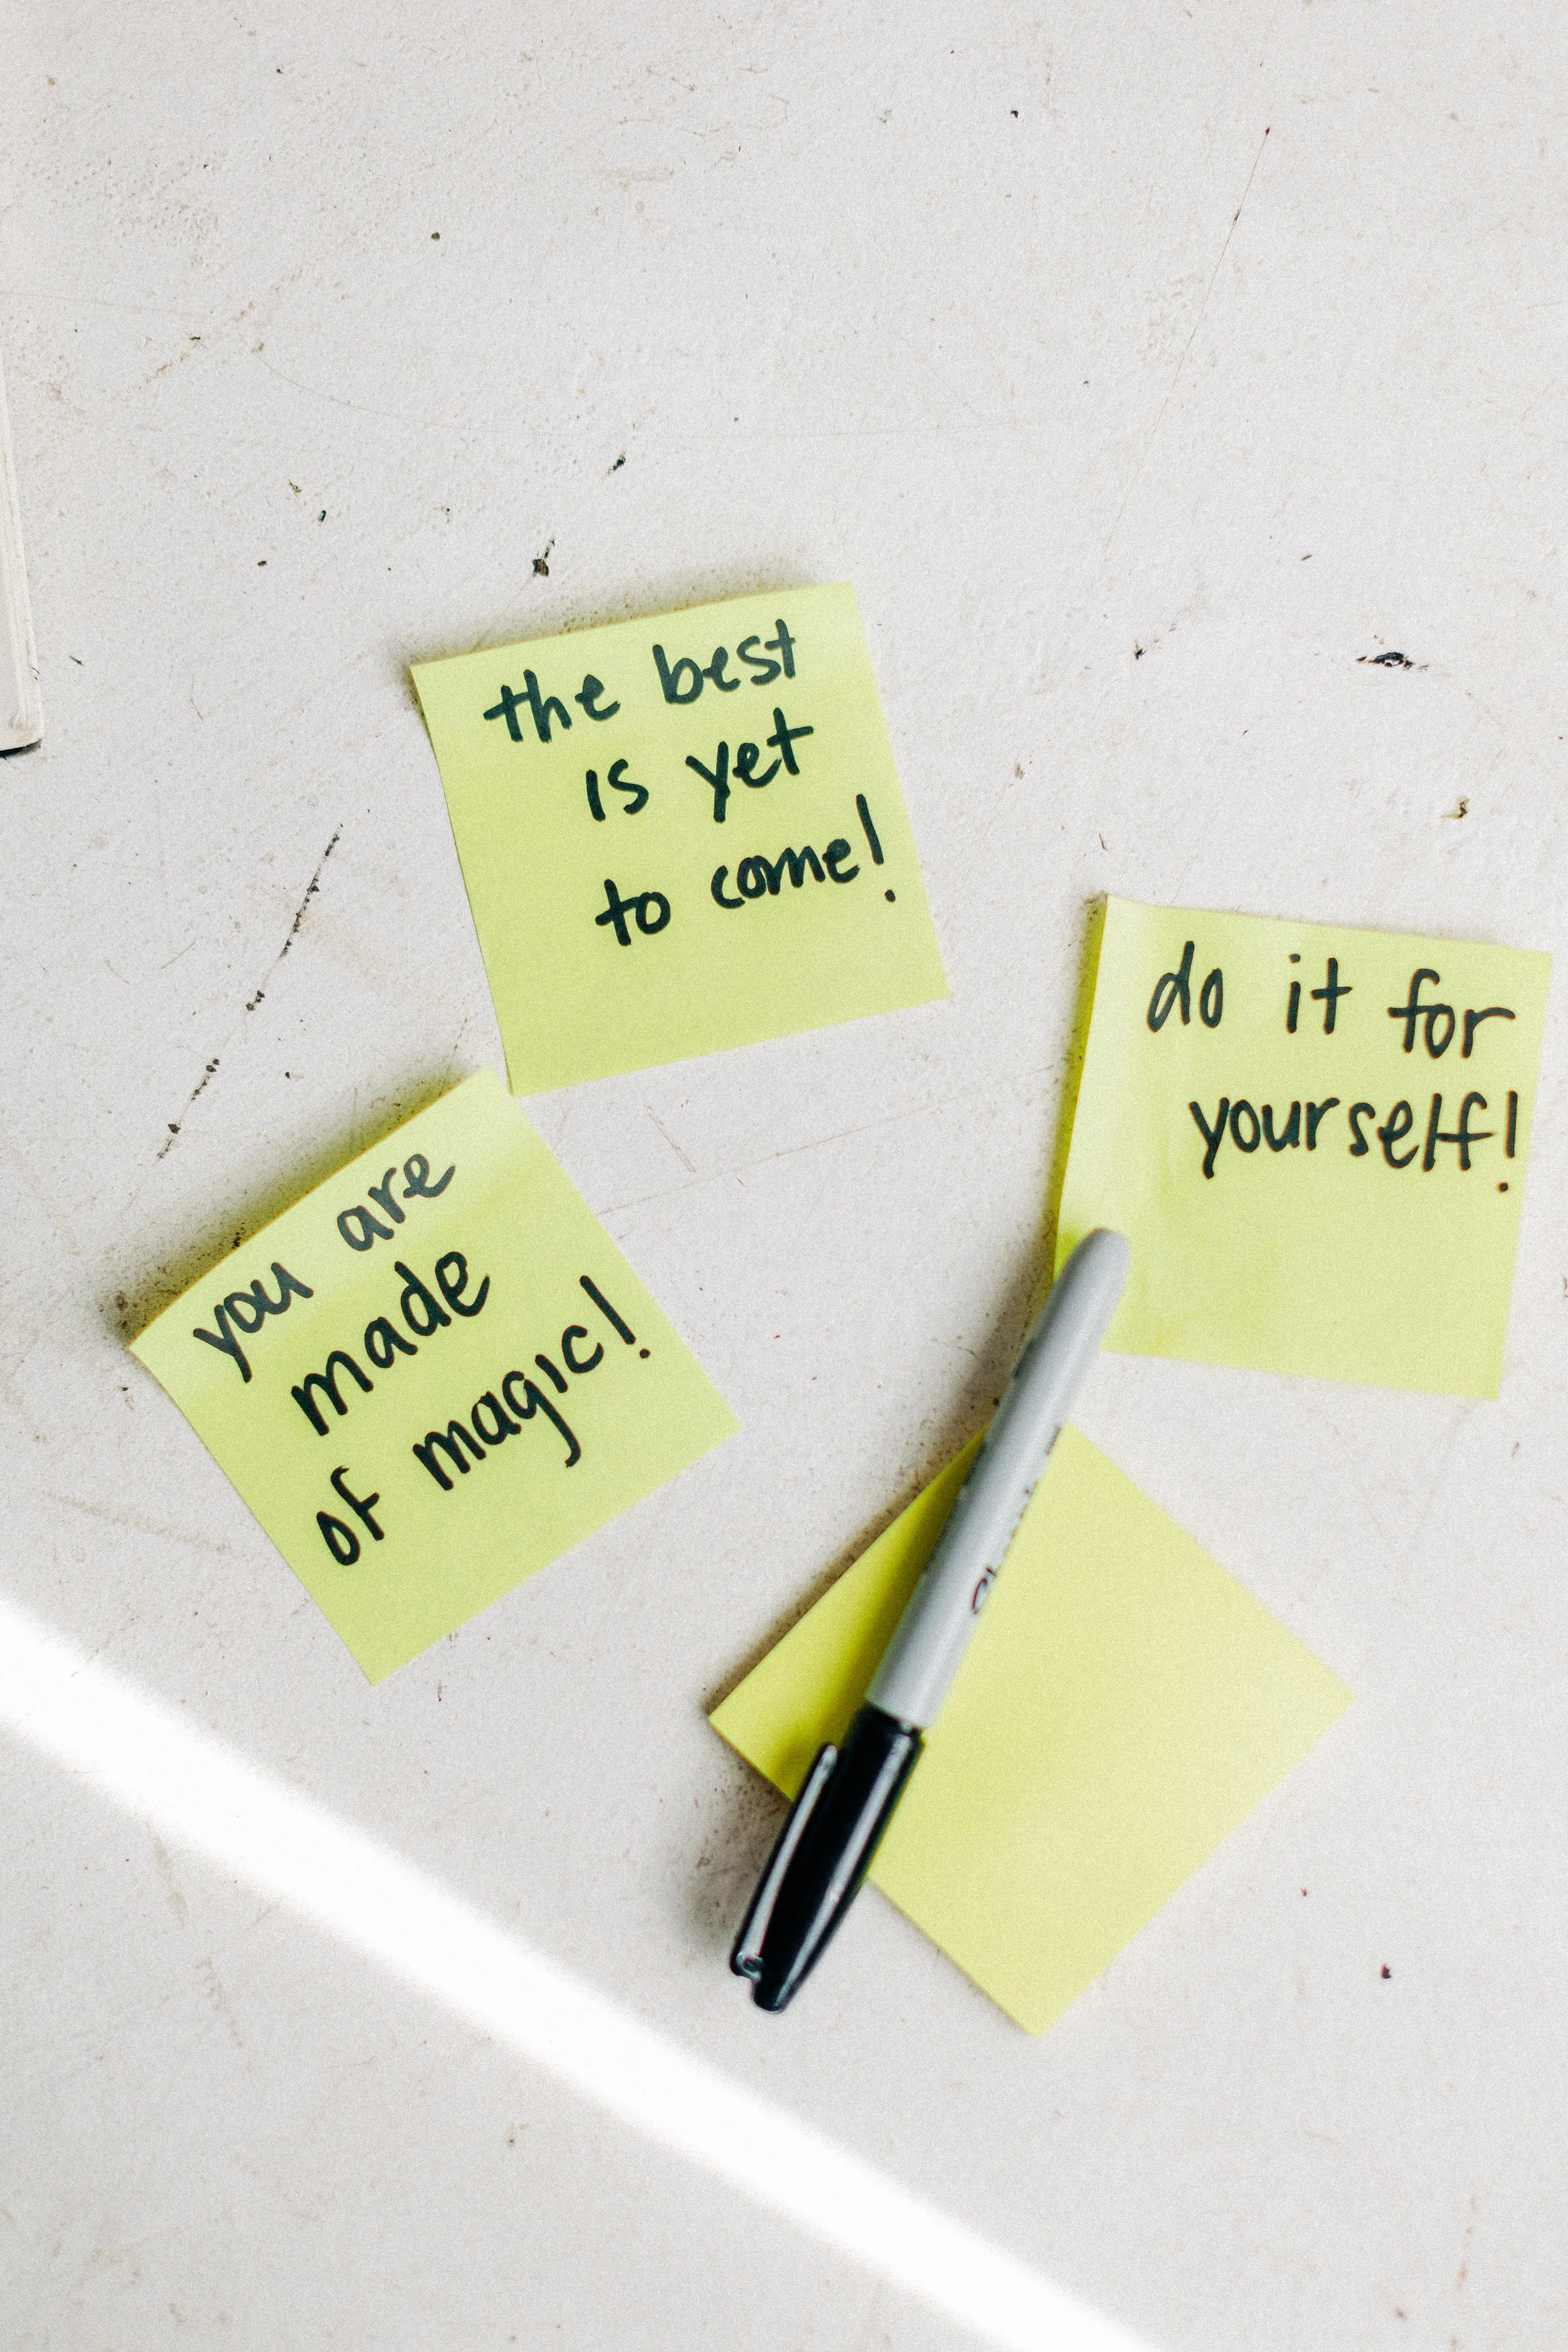 the best
is yet
to come!
do it for
yourself!
you are
made
of magic!